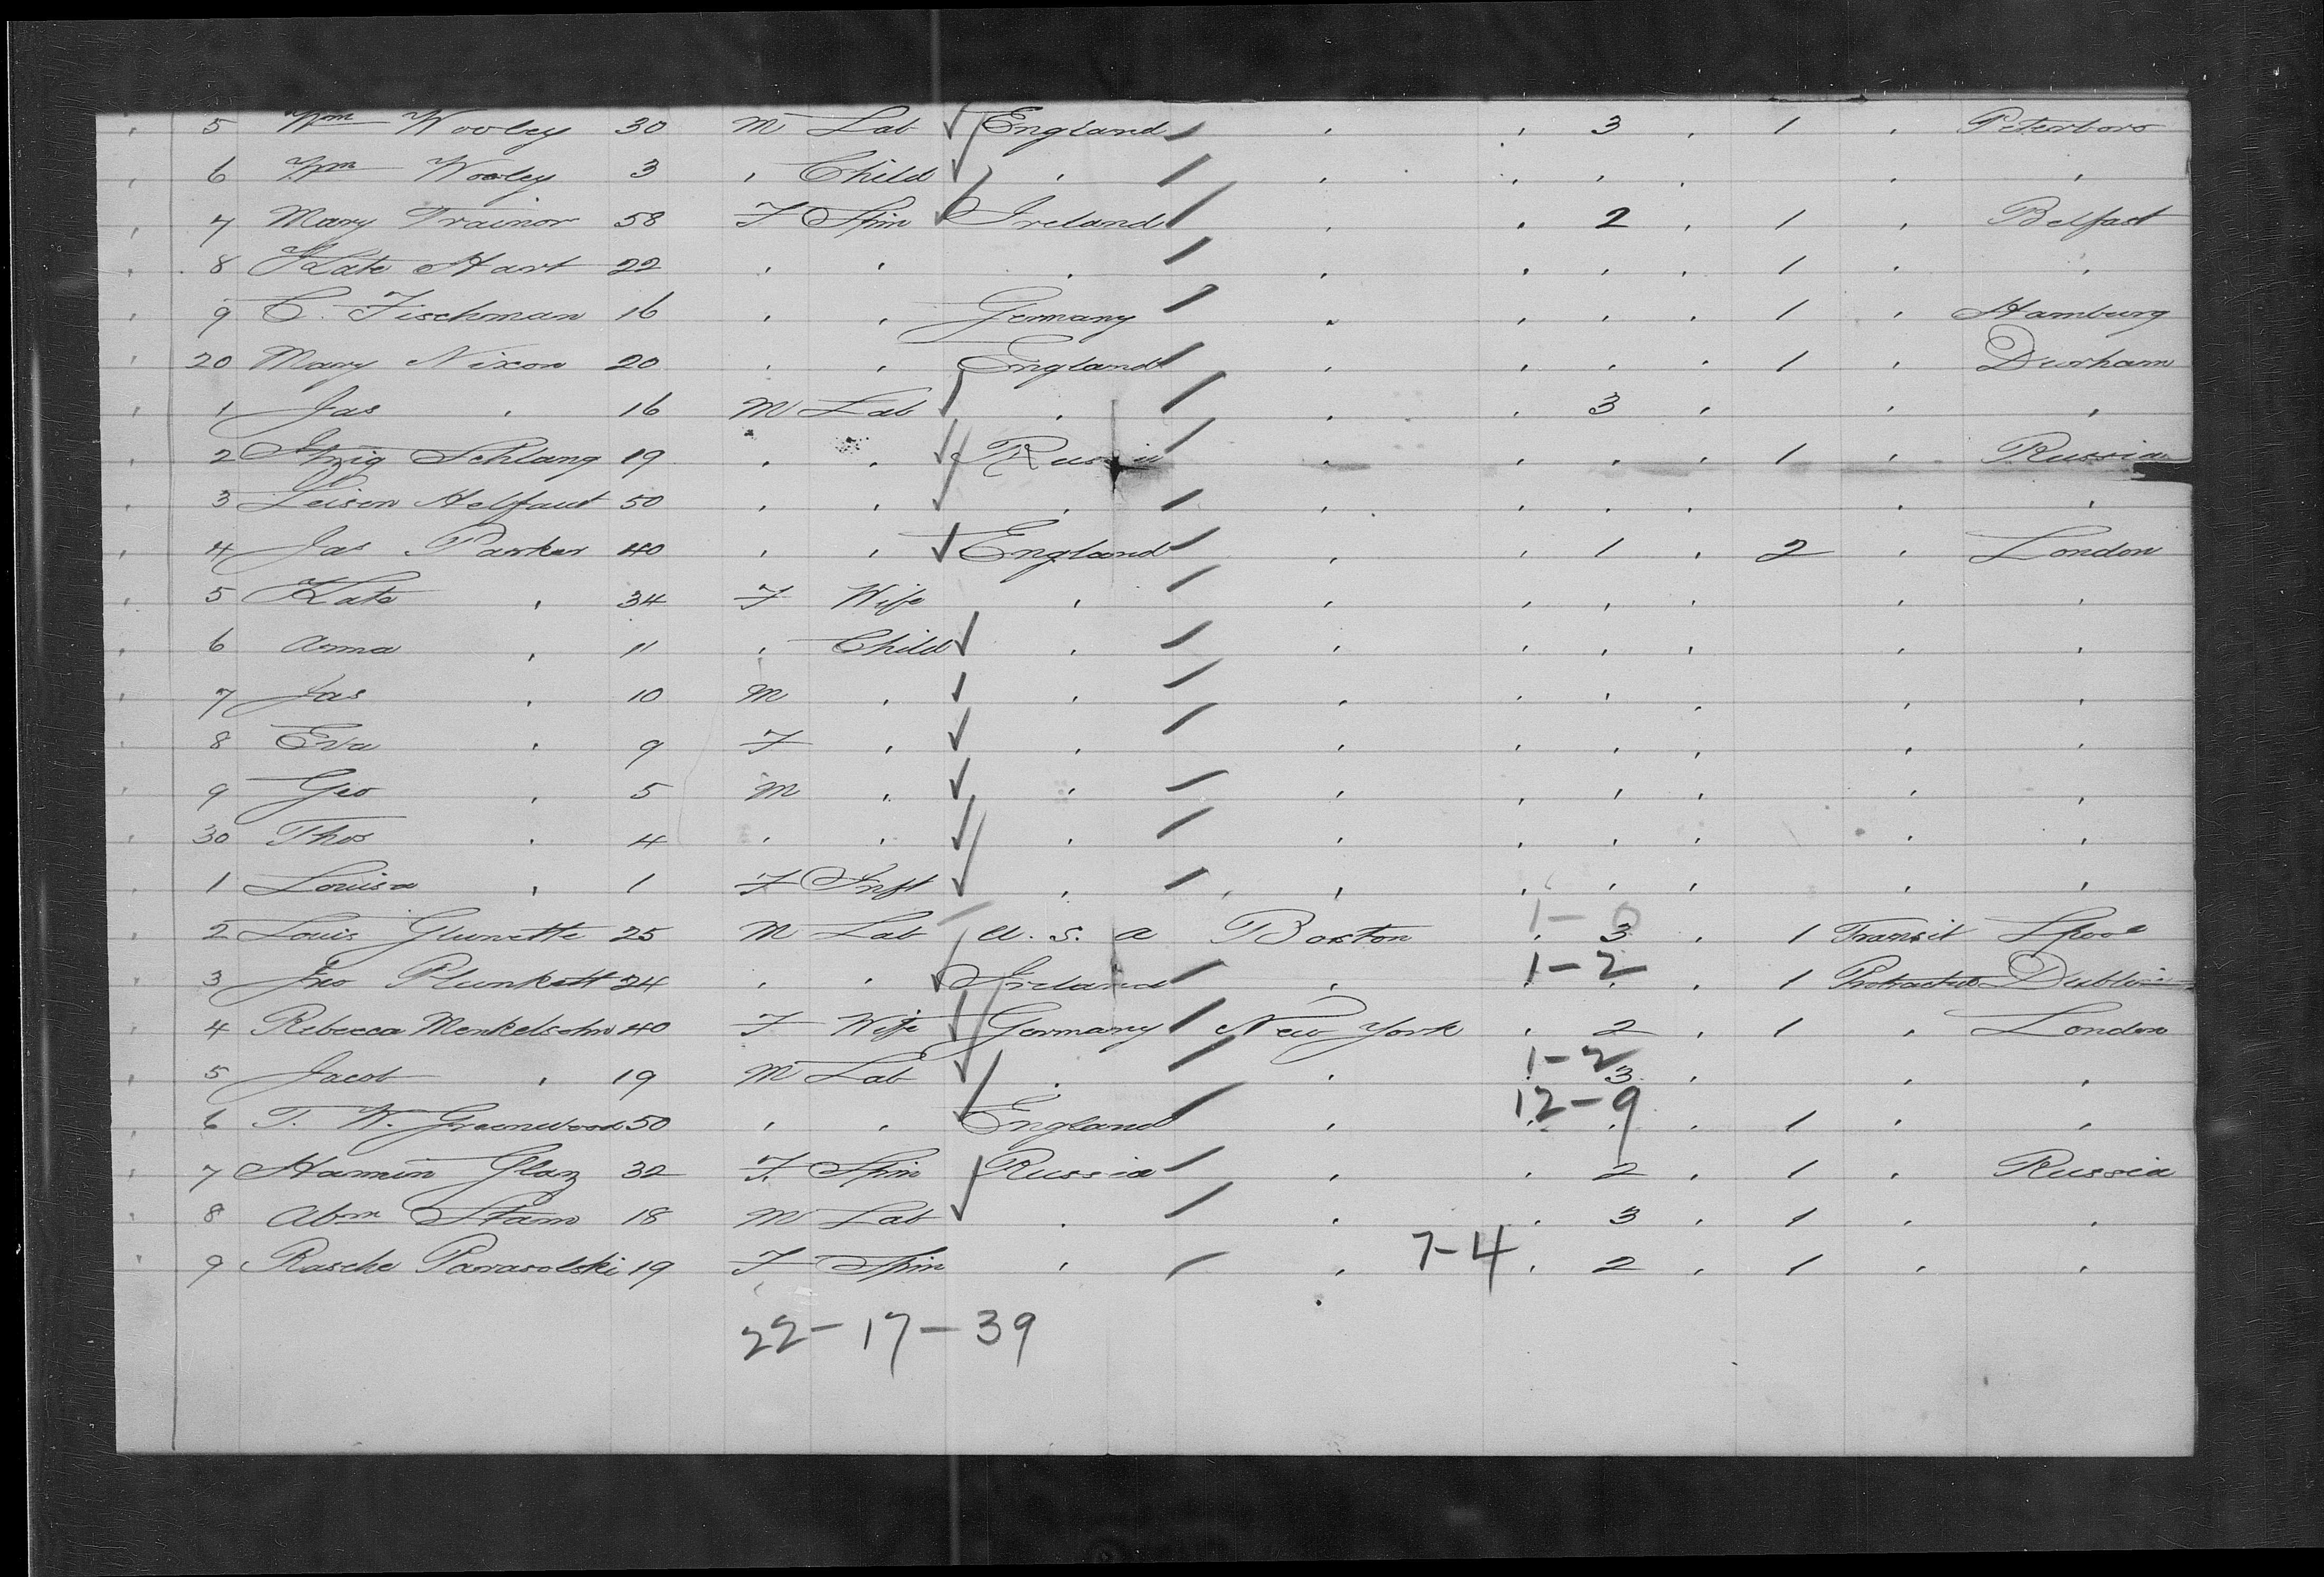 5 Wm Wooley 30 M Lab England 3 1 Peterboro
6 Wm Wooley 3 " Child " " " " " "
7 Mary Trainor 58 F Spin Ireland " " 2 " 1 " Belfast
8 Kate Hart 22 " " " " " " " 1 " "
9 C. Fischman 16 " " Germany " " " " 1 " Hamburg
20 Mary Nixon 20 " " England " " " " 1 " Durham
1 Jas " 16 M Lab " " " 3 " " "
2 Itzig Schlang 19 " " Russia " " " " 1 " Russia
3 Leison Helfaut 50 " " " " " " " " "
4 Jas Parker 40 " " England " " 1 " 2 " London
5 Kate " 34 F Wife " " " " " " "
6 Anna " 11 " Child " " " " " " "
7 Jas " 10 M " " " " " " " "
8 Eva " 9 F " " " " " " " "
9 Geo " 5 M " " " " " " " "
30 Thos " 4 " " " " " " " " "
1 Louisa " 1 F Inft " " " " " " "
1-0
2 Louis 25 M Lab U.S.A Boston " 3 " 1 Transit Lpool
1-2
3 Jno Plunkett 24 " " Ireland " " " " 1 Protracted Dublin
4 Rebecca Menkelsohn 40 F Wife Germany New York " 2 " 1 " London
1-2
5 Jacob " 19 M Lab " " " 3 " " "
12-9
6 T. W. Greenwood 50 " " England " " " " 1 " "
7 Hannin Glaz 32 F Spin Russia " " 2 " 1 " Russia
8 Abm Stam 18 M Lab " " " 3 " 1 " "
9 Rasche Parasolski 19 F Spin " " 7-4 " 2 " 1 " "
22-17-39